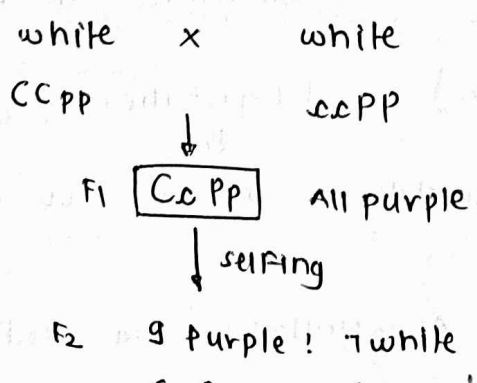 white x white
CCpp ccPP
F1 Cc Pp All purple
selfing
F2 9 purple : 7 white